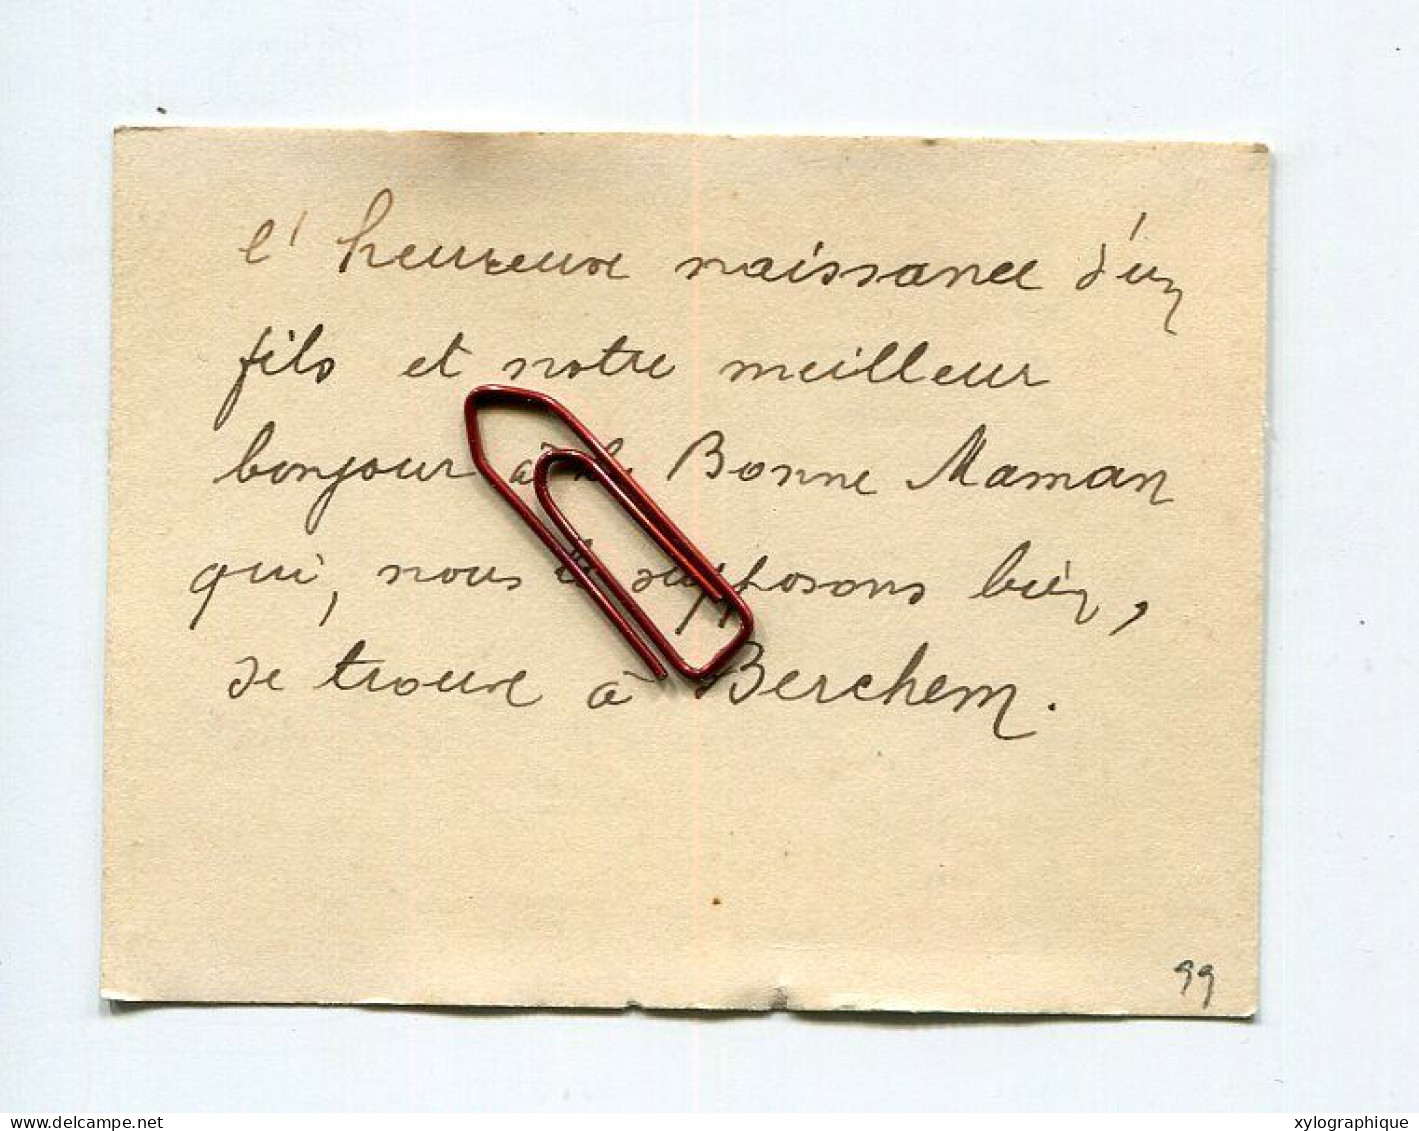 l'heureuse naissance d'un
fils et notre meilleur
bonjour à la Bonne Maman
qui, nous le supposons bien,
se trouve à Berchem.
99
xylographique